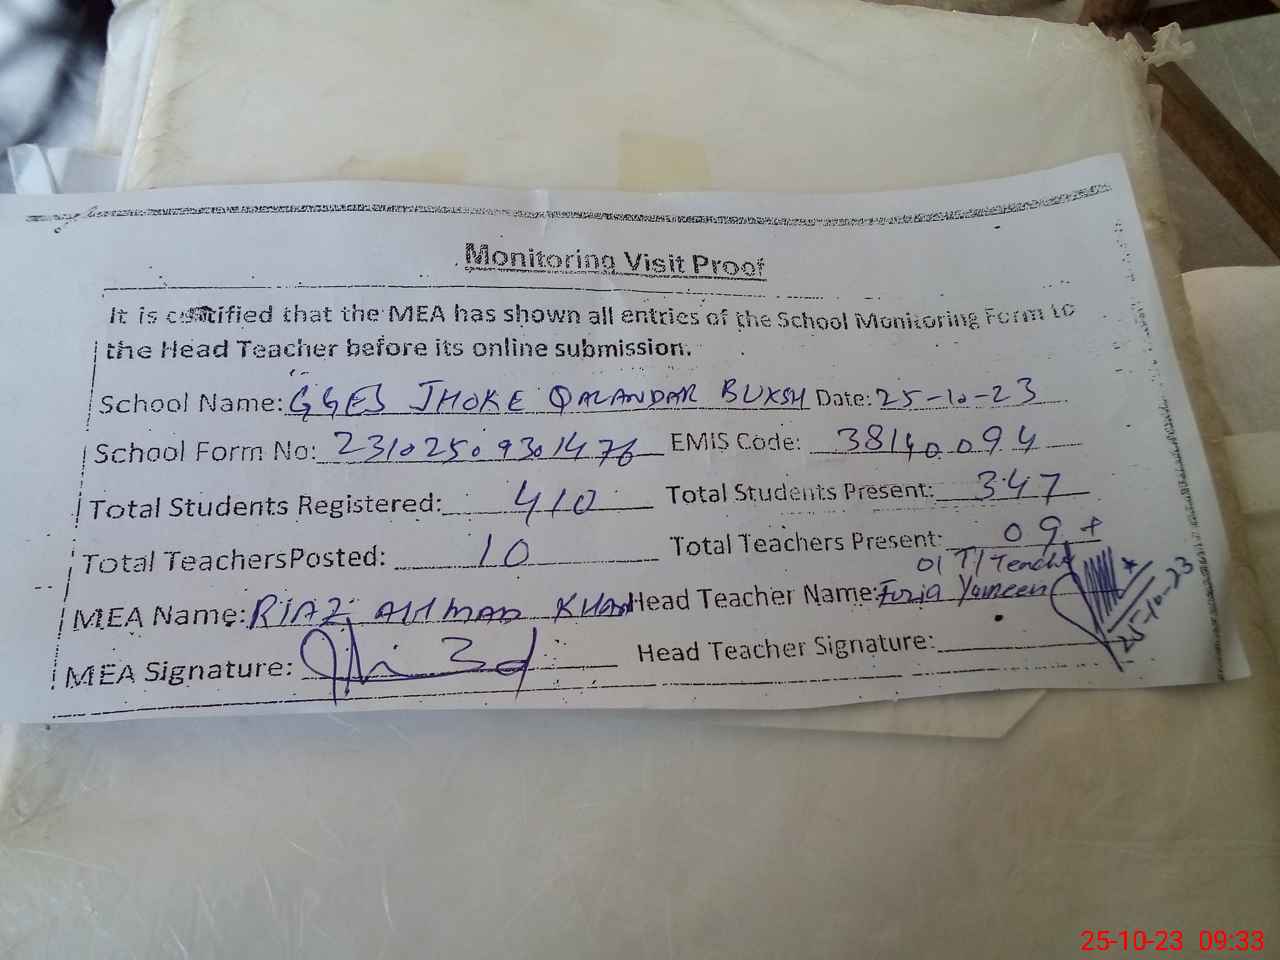 Monitoring Visit Proof
It is certified that the MEA has shown all entries of the School Monitoring Form to
the Head Teacher before its online submission.
School Name: GGES JHOKE QALANDAR BUKSH Date: 25-10-23
School Form No: 23102509301476 EMIS Code: 38140094
Total Students Registered: 410 Total Students Present: 347
Total TeachersPosted: 10 Total Teachers Present: 09 +
01 T/Teacher
MEA Name: RIAZ AHMAD KHAN Head Teacher Name: Fozia Yameen
MEA Signature: Head Teacher Signature:
25-10-23
25-10-23 09:33